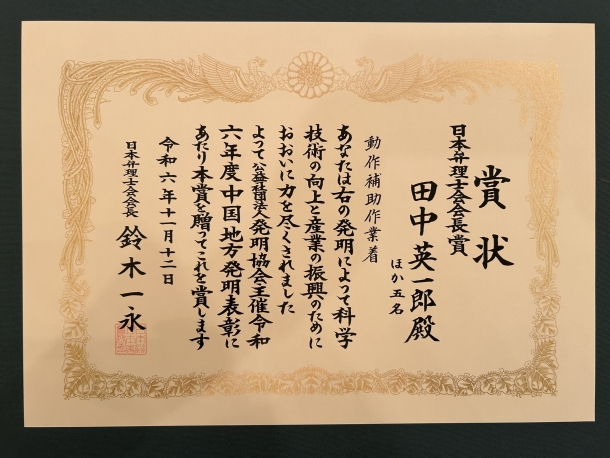 賞状
日本弁理士会会長賞
田中英一郎殿
ほか五名
動作補助作業着
あなたは右の発明によって科学
技術の向上と産業の振興のために
おおいに力を尽くされました
よって公益社団法人発明協会主催令和
六年度中国地方発明表彰に
あたり本賞を贈ってこれを賞します
令和六年十一月十二日
日本弁理士会会長 鈴木一永